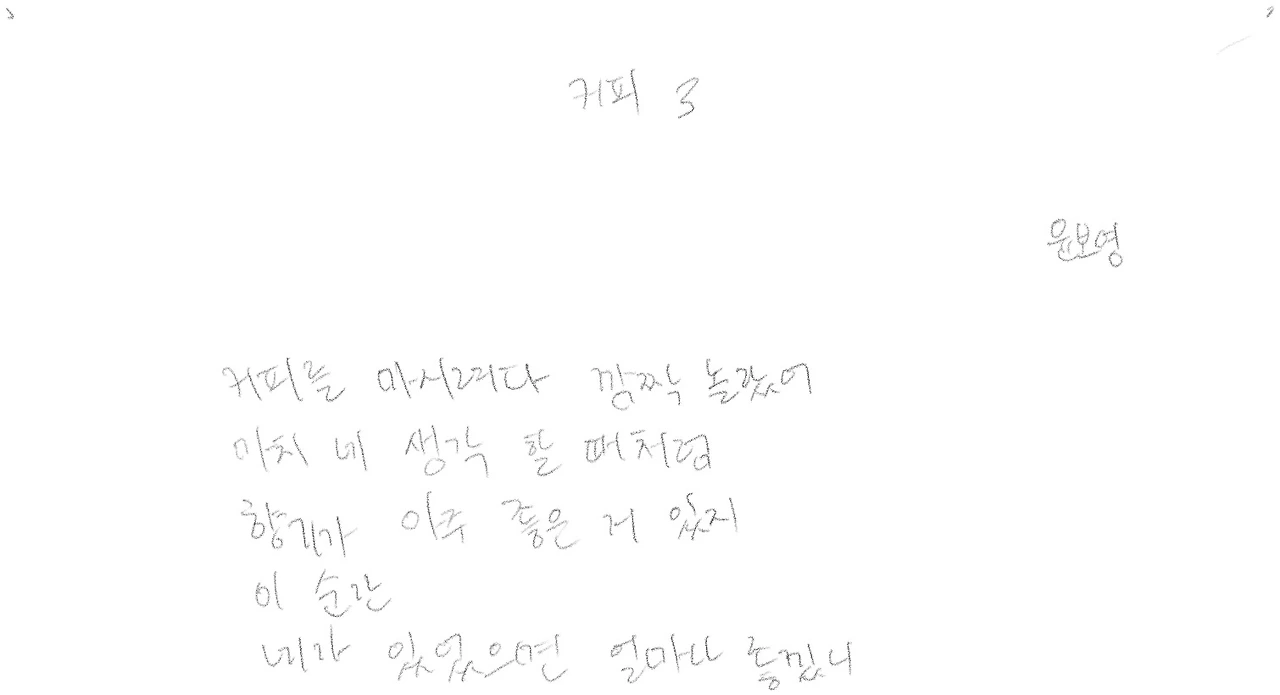 커피 3
윤보영
커피를 마시려다 깜짝 놀랐어
마치 네 생각 할 때처럼
향기가 아주 좋은 거 있지
이 순간
네가 있었으면 얼마나 좋겠니